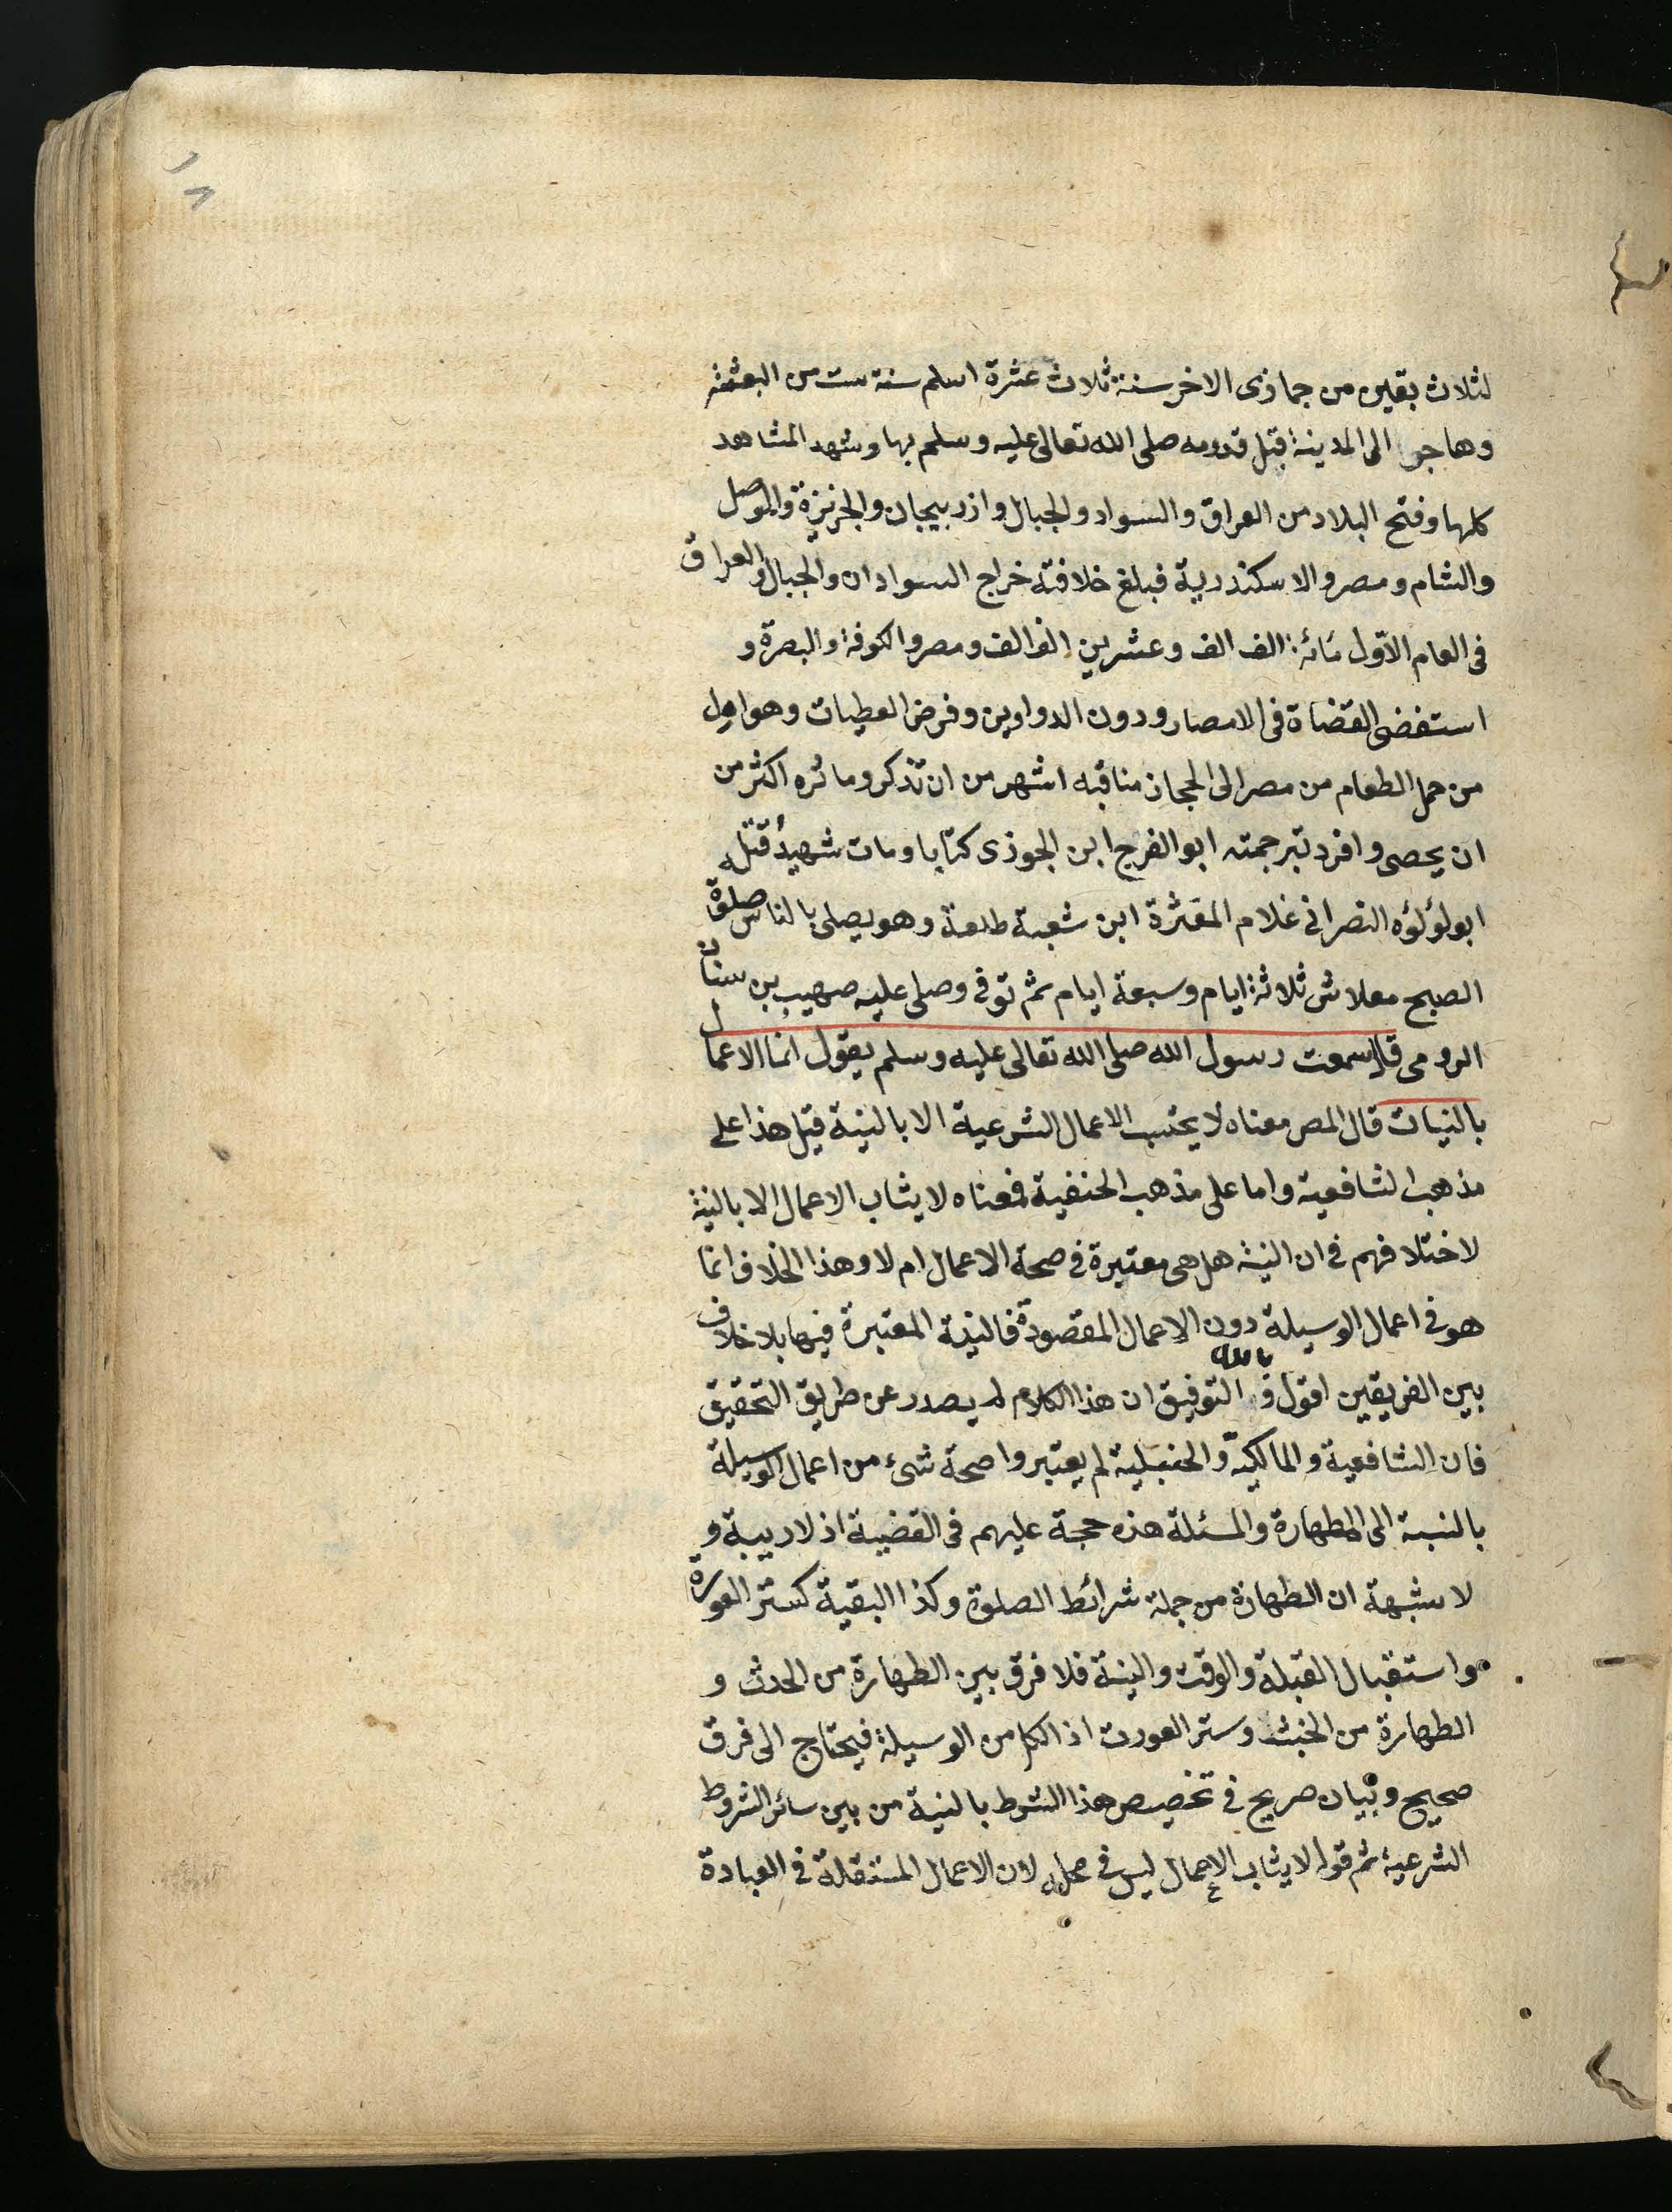 ١٨
لثلاث بقين من جماذى الاخر سنة ثلاث عشرة اسلم سنة ست من البعثة
وهاجر الى المدينة قبل قدومه صلى الله تعالى عليه وسلم بها وشهد المشاهد
كلها وفتح البلاد من العراق والسواد والجبال واذربيجان والجزيزة والموصل
والشام ومصر والاسكندرية فبلغ خلافته خراج السوادان والجبال والعراق
فى العام الاول مائة الف الف وعشرين الف الف ومصر والكوفة والبصرة و
استفضى القضاة فى الامصار ودون الدواوين وفرض العطيات وهو اول
من حمل الطعام من مصر الى الحجاز مناقبه اشهر من ان تذكر ومائره اكثر من
ان يحصى وافرد تبرجمته ابو الفرج ابن الجوذى كتابا ومات شهيدا قتله
ابو لؤلؤه النصرانى غلام المغثرة ابن شعبة طعنة وهو يصلى بالناس صلوة
الصبح معلاش ثلاثة ايام وسبعة ايام ثم توفى وصلى عليه صهيب بن سنان
الرومى قال سمعت رسول الله صلى الله تعالى عليه وسلم يقول انما الاعمال
بالنيات قال المص معناه لا يحتسب الاعمال الشرعية الا بالنية قيل هذا على
مذهب الشافعية واما على مذهب الحنفية فمعناه لا يثاب الاعمال الا بالنية
لاختلافهم فى ان النية هل هى معتبرة فى صحة الاعمال ام لا وهذا الخلاف انما
هو فى اعمال الوسيلة دون الاعمال المقصودة فالنية المعتبرة فيها بلا خلاف
بين الفريقين اقول و بالله التوفيق ان هذا الكلام لم يصدر عن طريق التحقيق
فان الشافعية والمالكية والحنبلية لم يعتبروا صحة شىء من اعمال الوسيلة
بالنسبة الى الطهارة والمسئلة هذه حجة عليهم فى القضية اذ لا ريبة و
لا شبهة ان الطهارة من جملة شرائط الصلوة وكذا البقية كستر العورة
واستقبال القبلة والوقت والنية فلا فرق بين الطهارة من الحدث و
الطهارة من الخبث وستر العورت اذ الكل من الوسيلة فيحتاج الى فرق
صحيح وبيان صريح فى تخصيص هذا الشرط بالنية من بين سائر الشروط
الشرعية ثم قوله لا يثاب الاعمال ليس فى محله لان الاعمال المستقلة فى العبادة